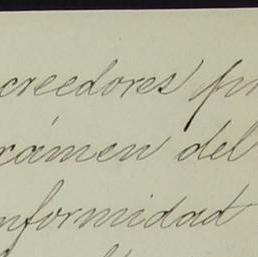 creedores pr
rámen del
nformidad